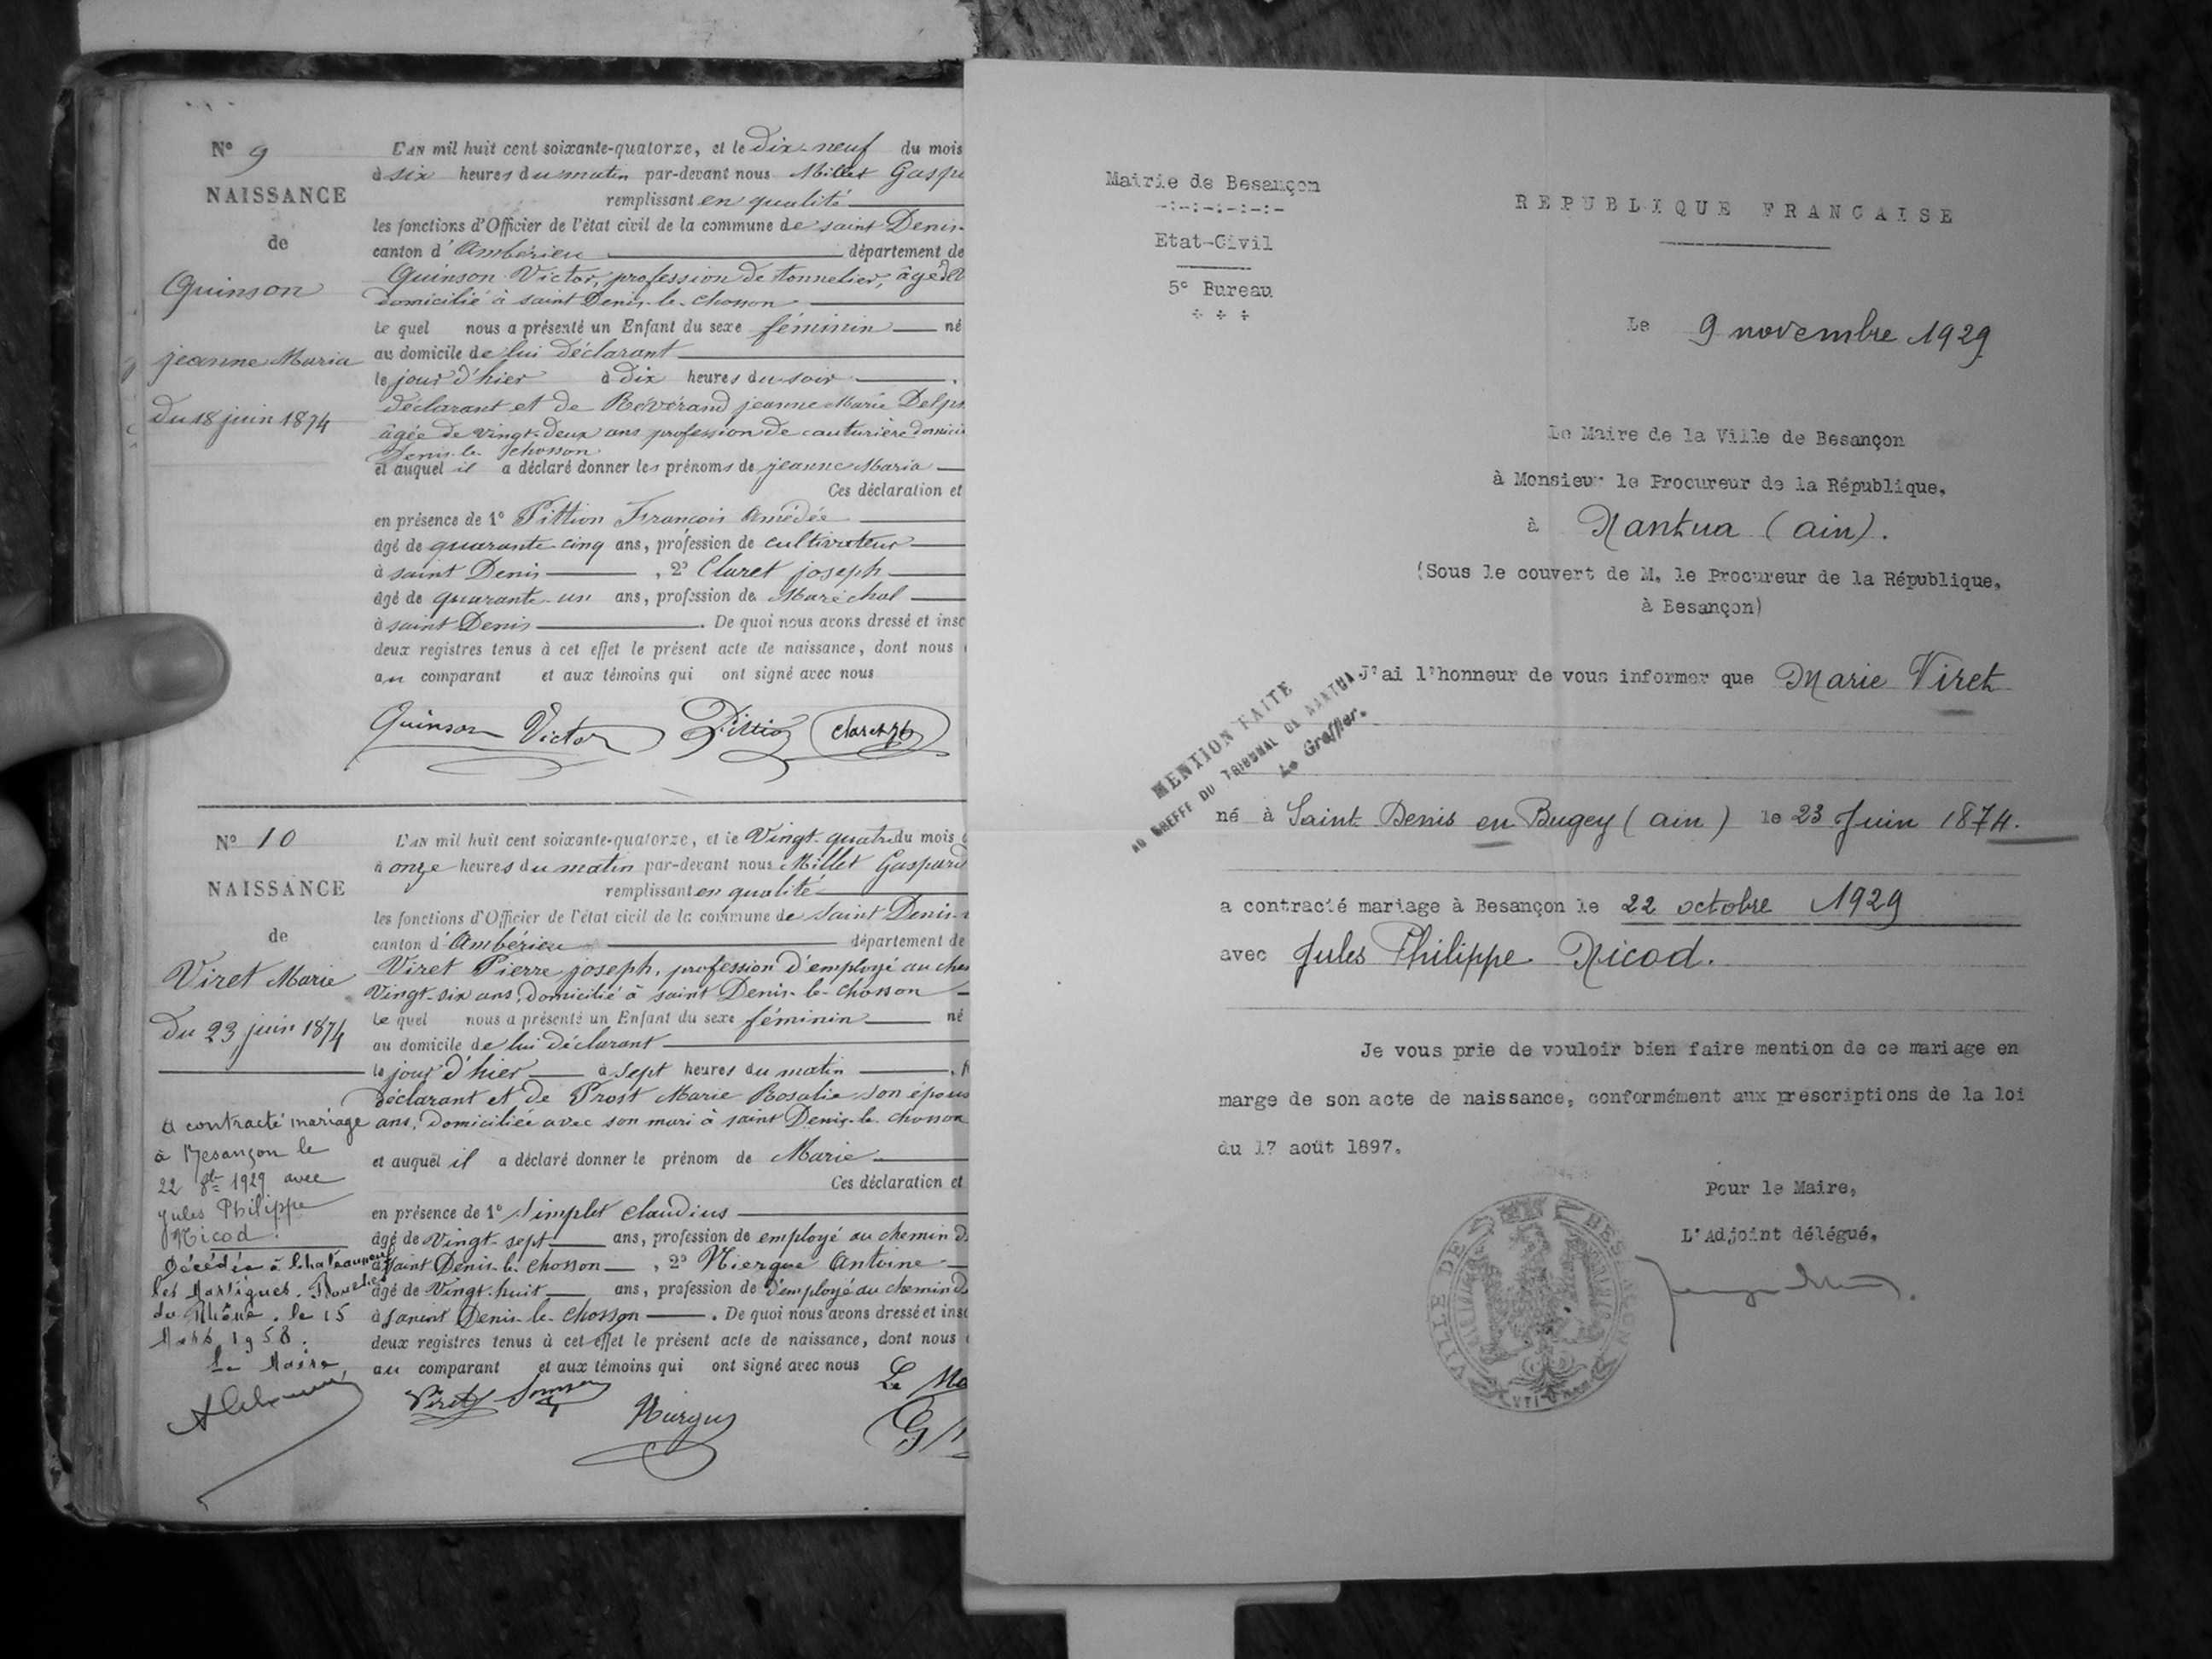 N° 9
NAISSANCE
de
Quinson
jeanne Maria
Du 18 juin 1874
L'AN mil huit cent soixante-quatorze, et le Dix-neuf du mois
à six heures du matin par-devant nous Millet Gaspa
remplissant en qualité
les fonctions d'Officier de l'état civil de la commune de saint Denis-
canton d'Ambérieu département de
Quinson Victor, profession de tonnelier, âgé de
domicilié à saint Denis-le-chosson
le quel nous a présenté un Enfant du sexe féminin né
au domicile de lui déclarant
le jour d'hier à Dix heures du soir
déclarant et de Révérand jeanne Marie Delph
âgée de vingt-deux ans profession de couturière domici
Denis-le-chosson
et auquel il a déclaré donner les prénoms de jeanne Maria
Ces déclaration et
en présence de 1° Pittion François Amédée
âgé de quarante-cinq ans, profession de cultivateur
à saint Denis , 2° Claret joseph
âgé de quarante-un ans, profession de Maréchal
à saint Denis . De quoi nous avons dressé et insc
deux registres tenus à cet effet le présent acte de naissance, dont nous
au comparant et aux témoins qui ont signé avec nous
Quinson Victor Pittion Claret
N° 10
NAISSANCE
de
Viret Marie
Du 23 juin 1874
a contracté mariage
à Besançon le
22 8bre 1929 avec
Jules Philippe
Nicod.
Décédée à Chateauneuf
les Martigues. Bouches
du Rhône. le 15
Mars 1958.
Le Maire
L'AN mil huit cent soixante-quatorze, et le Vingt-quatre du mois
à onze heures du matin par-devant nous Millet Gaspard
remplissant en qualité
les fonctions d'Officier de l'état civil de la commune de saint Denis-
canton d'Ambérieu département de
Viret Pierre joseph, profession d'employé au che
Vingt-six ans, domicilié à saint Denis-le-chosson
le quel nous a présenté un Enfant du sexe féminin né
au domicile de lui déclarant
le jour d'hier à sept heures du matin
déclarant et de Prost Marie Rosalie son épous
ans, domiciliée avec son mari à saint Denis-le-chosson
et auquel il a déclaré donner le prénom de Marie
Ces déclaration et
en présence de 1° Simplet Claudius
âgé de Vingt-sept ans, profession de employé au chemin d
à saint Denis-le-chosson , 2° Niergue Antoine
âgé de Vingt-huit ans, profession de d'employé au chemin d
à saint Denis-le-chosson . De quoi nous avons dressé et insc
deux registres tenus à cet effet le présent acte de naissance, dont nous
au comparant et aux témoins qui ont signé avec nous
Viret
Le Ma
Mairie de Besançon
-:-:-:-:-:-
Etat-Civil
5° Bureau
REPUBLIQUE FRANCAISE
Le 9 novembre 1929
Le Maire de la Ville de Besançon
à Monsieur le Procureur de la République,
à Nantua (ain).
(Sous le couvert de M. le Procureur de la République,
à Besançon)
J'ai l'honneur de vous informer que Marie Viret
MENTION FAITE
AU GREFFE DU TRIBUNAL DE NANTUA
Le Greffier.
né à Saint Denis en Bugey (ain) le 23 Juin 1874.
a contracté mariage à Besançon le 22 octobre 1929
avec Jules Philippe Nicod.
Je vous prie de vouloir bien faire mention de ce mariage en
marge de son acte de naissance, conformément aux prescriptions de la loi
du 17 août 1897.
Pour le Maire,
L'Adjoint délégué,
VILLE DE BESANÇON